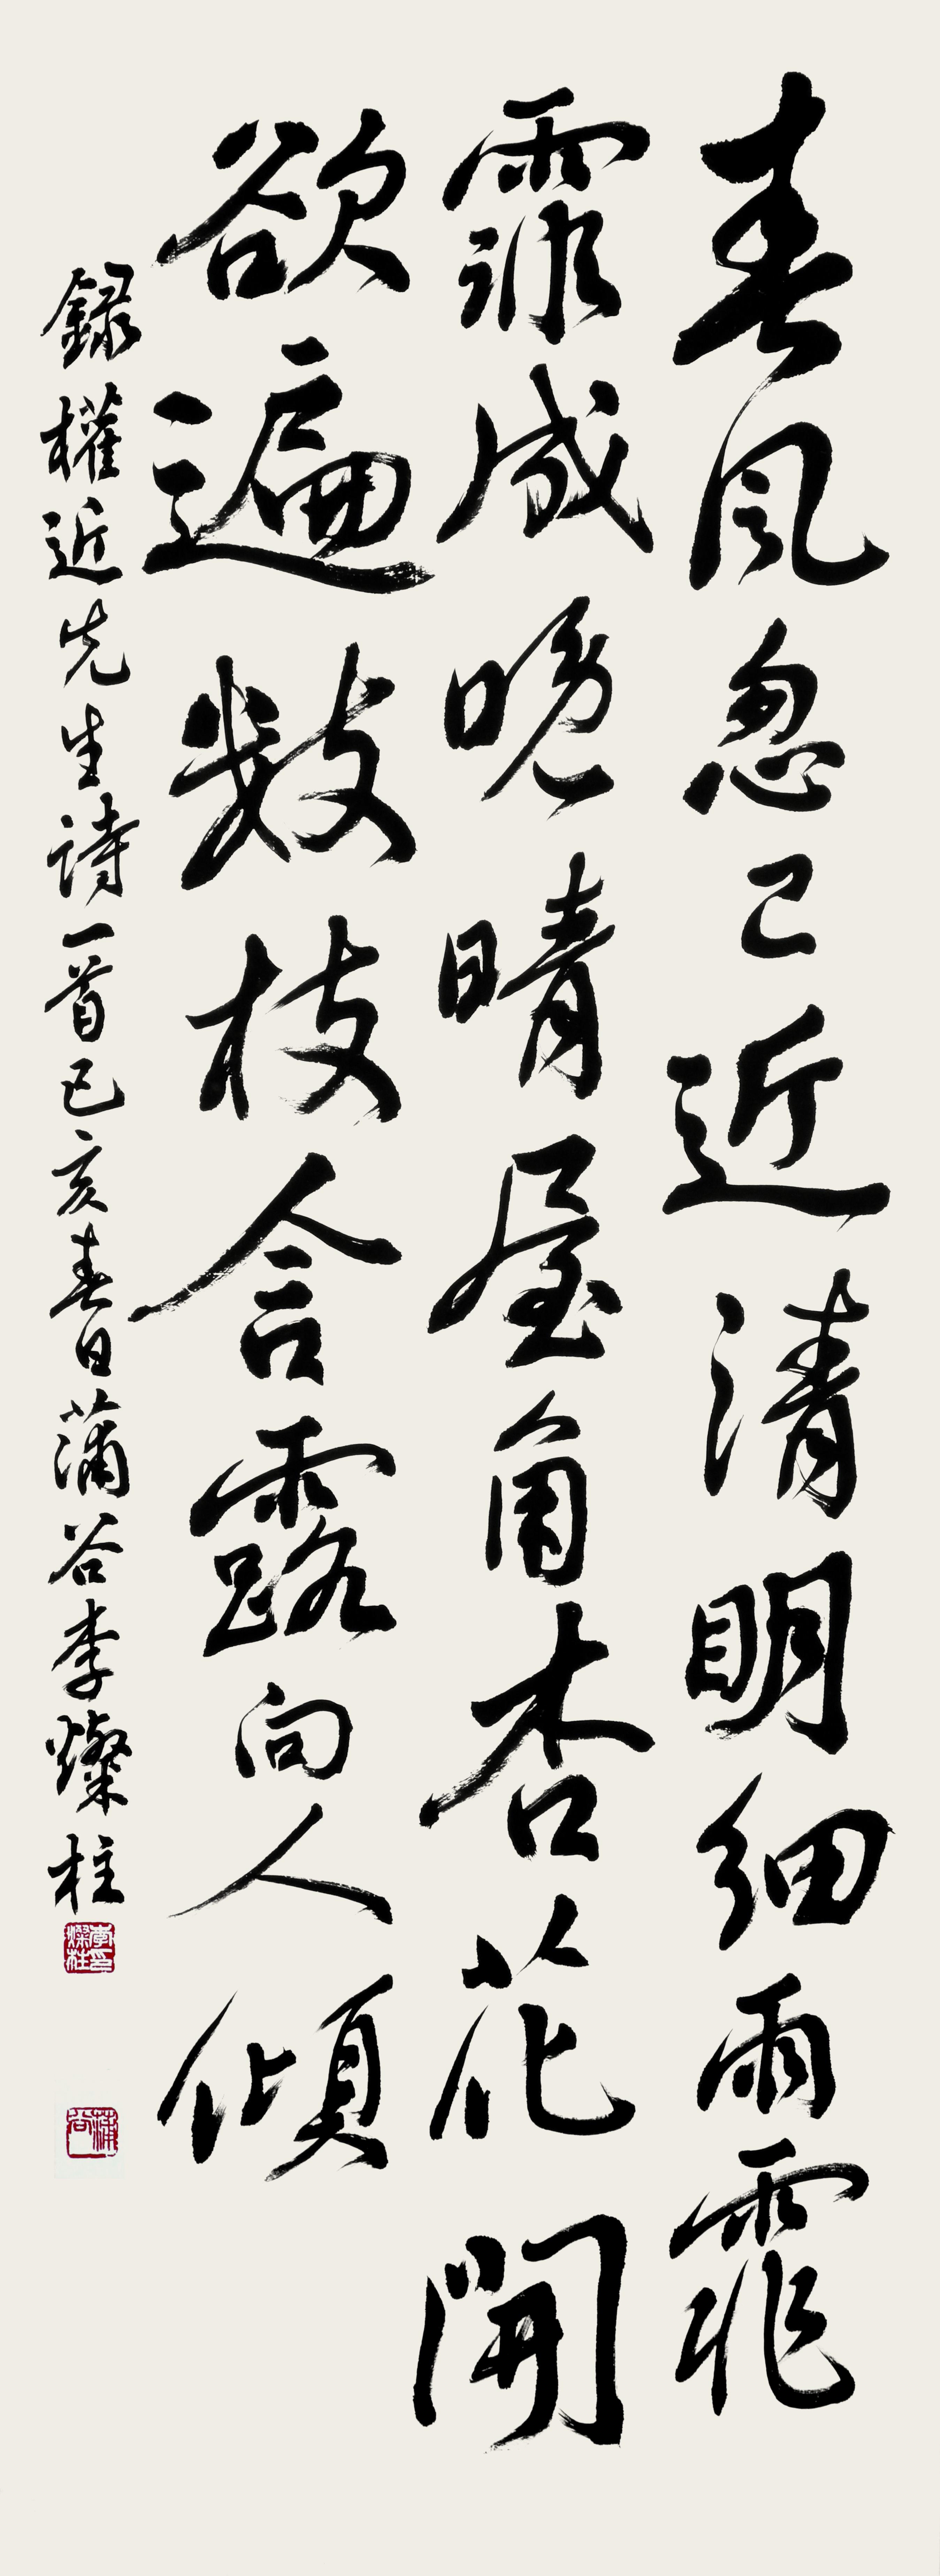 春風忽已近清明細雨霏
霏成晚晴屋角杏花開
欲遍數枝含露向人傾
錄權近先生詩一首己亥春日蒲谷李燦柱
李燦柱印
蒲谷